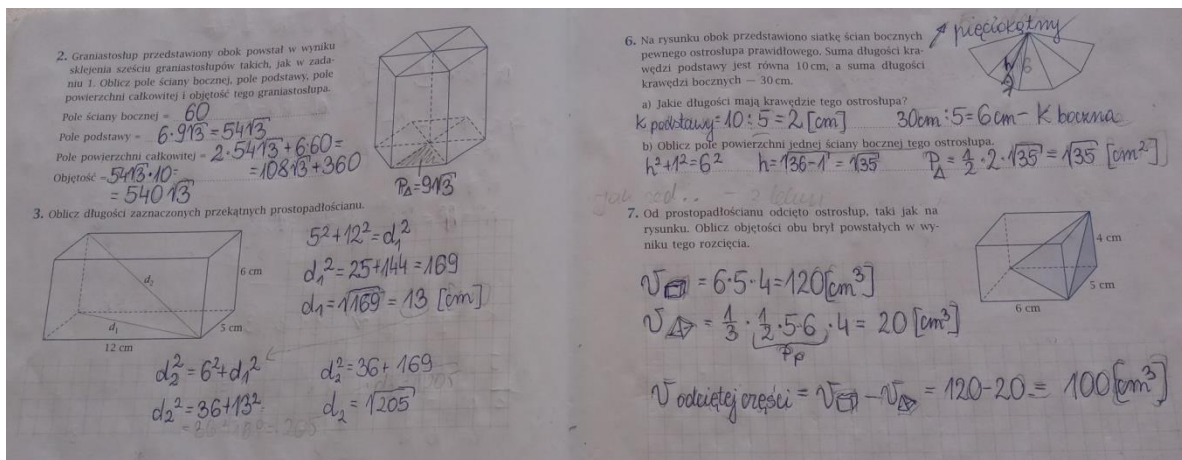 2. Graniastosłup przedstawiony obok powstał w wyniku
sklejenia sześciu graniastosłupów takich, jak w zada-
niu 1. Oblicz pole ściany bocznej, pole podstawy, pole
powierzchni całkowitej i objętość tego graniastosłupa.
Pole ściany bocznej = 60
Pole podstawy = 6·9√3 = 54√3
Pole powierzchni całkowitej = 2·54√3+6·60=
=108√3+360
Objętość = 54√3·10=
= 540√3
P△=9√3
3. Oblicz długości zaznaczonych przekątnych prostopadłościanu.
d₂
d₁
6 cm
5 cm
12 cm
5²+12²=d₁²
d₁²=25+144=169
d₁=√169 = 13 [cm]
d₂²=6²+d₁²
d₂²=36+13²
d₂²=36+169
d₂ = √205
6. Na rysunku obok przedstawiono siatkę ścian bocznych
pewnego ostrosłupa prawidłowego. Suma długości kra-
wędzi podstawy jest równa 10 cm, a suma długości
krawędzi bocznych — 30 cm.
pięciokątny
h
6
a) Jakie długości mają krawędzie tego ostrosłupa?
K podstawy=10:5=2 [cm] 30cm:5=6cm- K boczna
b) Oblicz pole powierzchni jednej ściany bocznej tego ostrosłupa.
h²+1²=6² h=√36-1=√35 P△=1/2·2·√35=√35 [cm²]
7. Od prostopadłościanu odcięto ostrosłup, taki jak na
rysunku. Oblicz objętości obu brył powstałych w wy-
niku tego rozcięcia.
4 cm
5 cm
6 cm
V = 6·5·4=120[cm³]
V = 1/3·1/2·5·6·4= 20 [cm³]
Pp
V odciętej części = V - V = 120-20= 100[cm³]